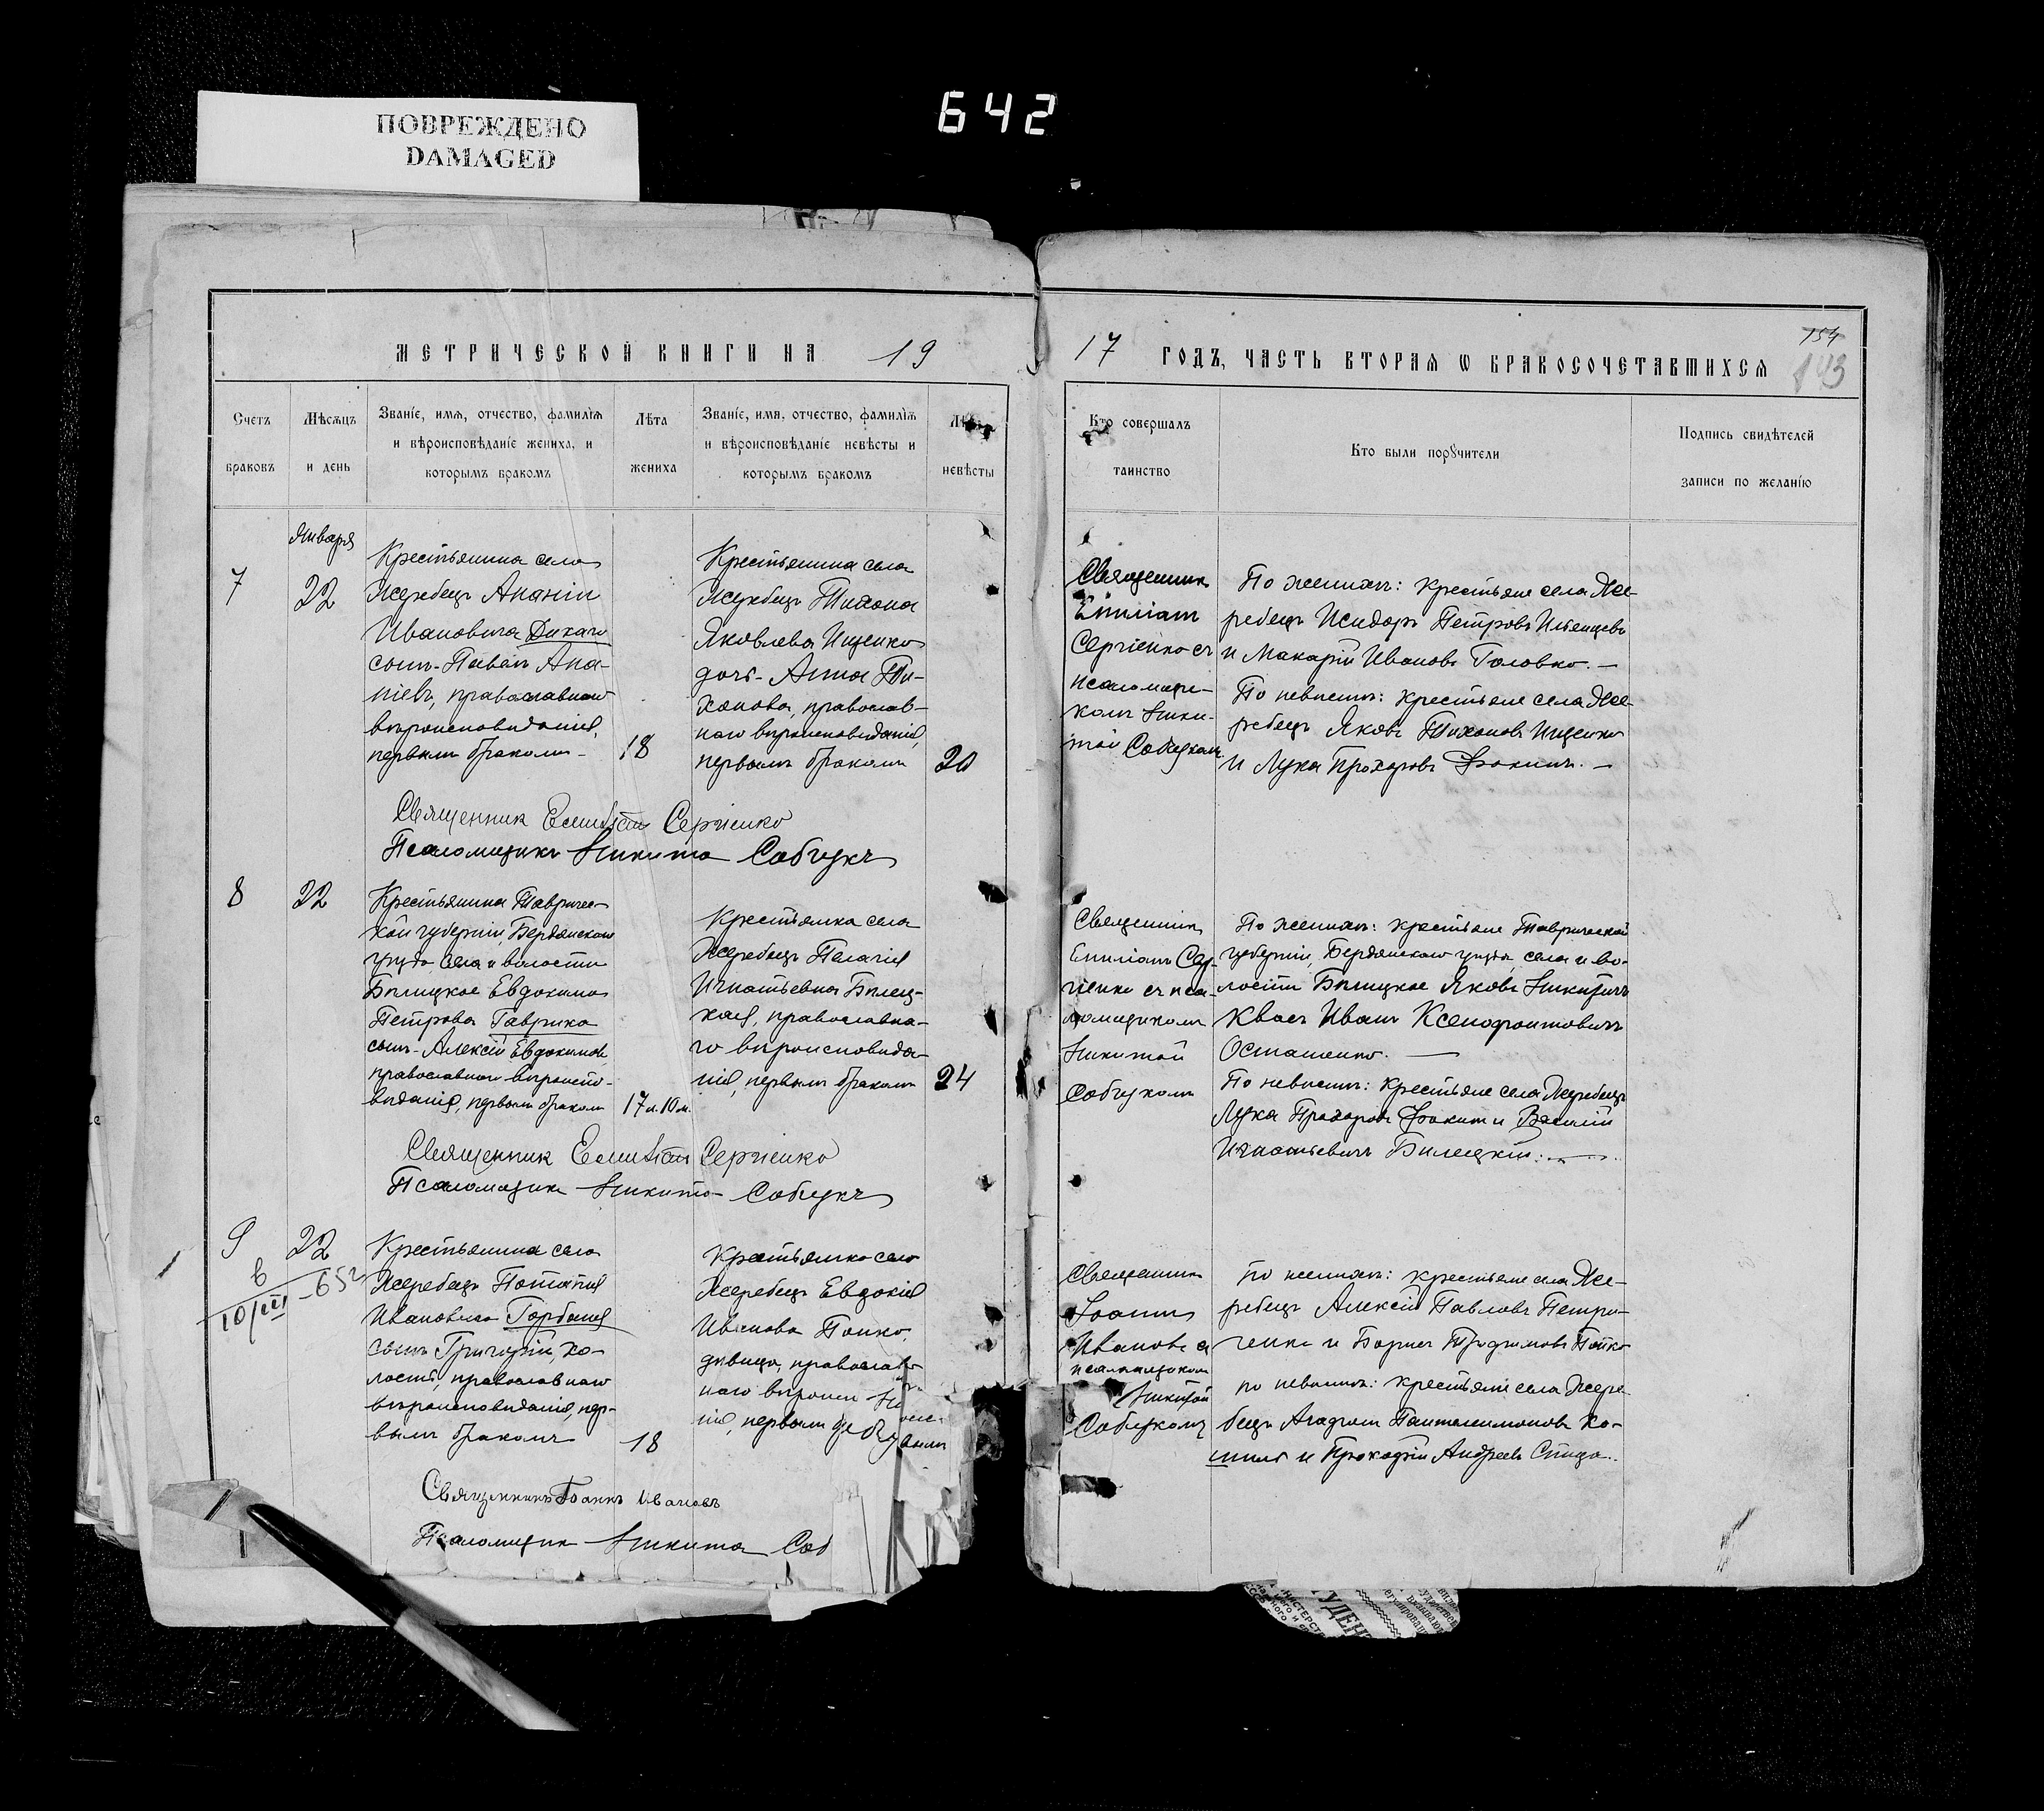 ПОВРЕЖДЕНО
DAMAGED
642
МЕТРИЧЕСКОЙ КНИГИ НА 19
17 ГОДЪ, ЧАСТЬ ВТОРАЯ Ѡ БРАКОСОЧЕТАВШИХСЯ
154
143
Счетъ
браковъ
Мѣсяцъ
и день
Званіе, имя, отчество, фамилія
и вѣроисповѣданіе жениха, и
которымъ бракомъ
Лѣта
жениха
Званіе, имя, отчество, фамилія
и вѣроисповѣданіе невѣсты и
которымъ бракомъ
невѣсты
Кто совершалъ
таинство
Кто были порꙋчители
Подпись свидѣтелей
записи по желанію
7
Января
22
Крестьянина села
Жеребецъ Ананіи
Ивановича Дикаго
сынъ - Павелъ Ана-
ніевъ, православнаго
вѣроисповѣданія,
первымъ бракомъ -
18
Крестьянина села
Жеребецъ Тихона
Яковлева Ищенко
дочь - Анна Ти-
хонова, православ-
наго вѣроисповѣданія,
первымъ бракомъ
20
Священник
Емиліанъ
Сергіенко съ
псаломщи-
комъ Ники-
той Собчукомъ
По женихѣ: крестьяне села Же-
ребецъ Исидоръ Петровъ
и Макарій Ивановъ Головко. -
По невѣстѣ: крестьяне села Же-
ребецъ Яковъ Тихоновъ Ищенко
и Лука Прохоровъ Фокинъ. -
Священник Емиліан Сергіенко
Псаломщикъ Никита Собчукъ
8
22
Крестьянина Тавричес-
кой губерніи, Бердянскаго
уѣзда села и волости
Бѣлицкое Евдокима
Петрова Гаврика
сынъ - Алексій Евдокимовъ,
православнаго вѣроиспо-
вѣданія, первымъ бракомъ
17 л. 10 м.
Крестьянка села
Жеребецъ Пелагія
Игнатьевна Бѣлец-
кая, православна-
го вѣроисповѣда-
нія, первымъ бракомъ
24
Священникъ
Емиліанъ Сер-
гіенко съ пса-
ломщикомъ
Никитой
Собчукомъ
По женихѣ: крестьяне Таврической
губерніи, Бердянскаго уѣзда, села и во-
лости Бѣлицкое Яковъ Никитичъ
Квасъ Иванъ Ксенофонтовичъ
Осташенко. -
По невѣстѣ: крестьяне села Жеребецъ
Лука Прохоровъ Фокин и Василій
Игнатьевичъ Билецкій. -
Священник Емиліан Сергіенко
Псаломщик Никита Собчукъ
9
22
6
10/III - 652
Крестьянина села
Жеребецъ Потапія
Ивановича Горбаня
сынъ Григорій, хо-
лостъ, православнаго
вѣроисповѣданія, пер-
вымъ бракомъ
18
Крестьянка села
Жеребецъ Евдокія
Иванова Попко,
дѣвица, православ-
наго
нія, первымъ
Священникъ
Іоаннъ
Ивановъ съ
псаломщикомъ
Никитой
Собчукомъ
По женихѣ: крестьяне села Же-
ребецъ Алексій Павловъ Петри-
ченко и Борисъ Трофимовъ Попко
по невѣстѣ: крестьяне села Жере-
бецъ Агафон Пантелимоновъ Ко-
и Прокофій Андреевъ
Священникъ Іоаннъ Ивановъ
Псаломщик Никита Соб